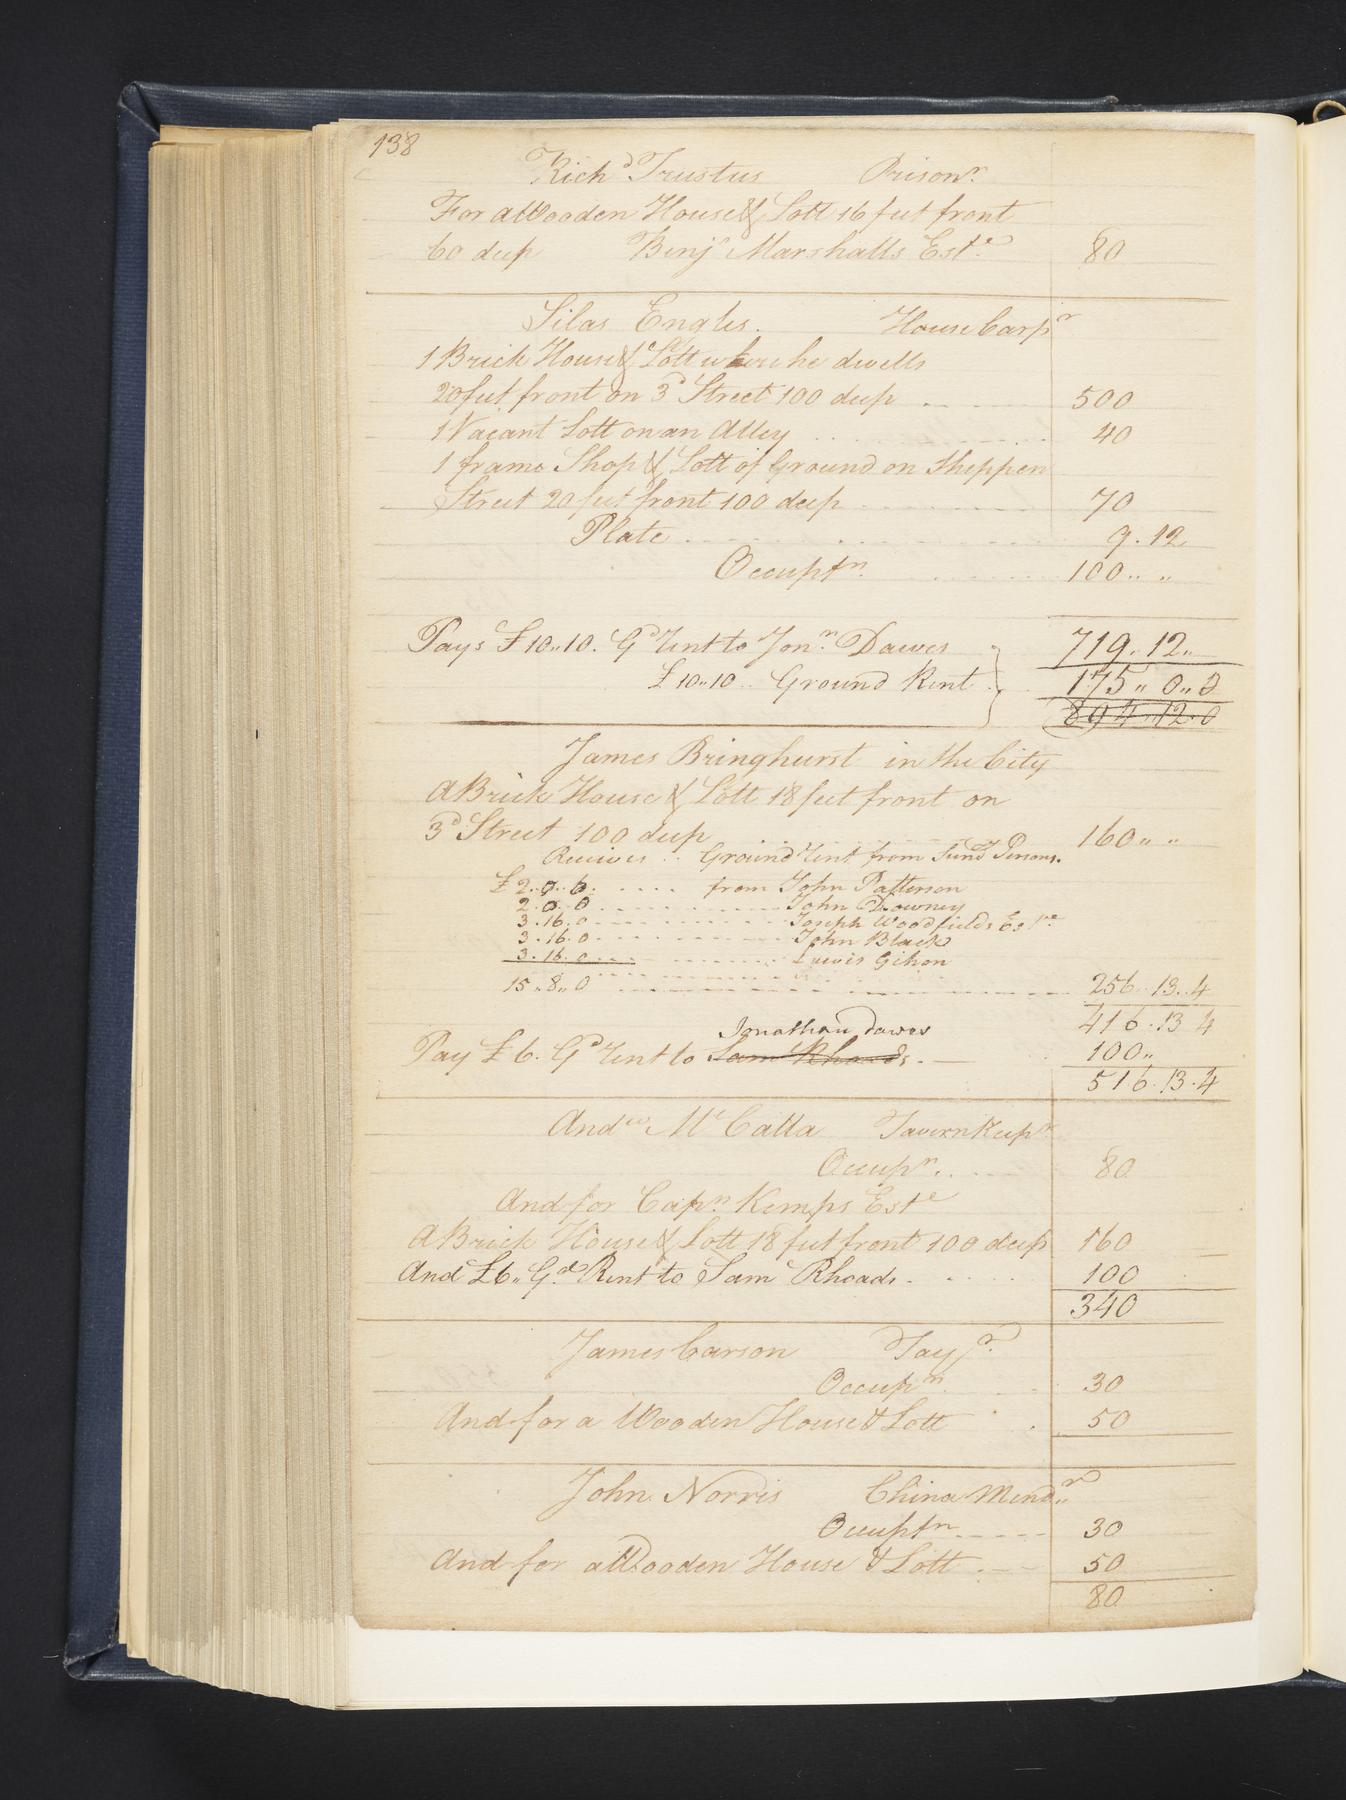 138
Richd Trustus Prisonr.
For a Wooden House & Lott 16 feet front
60 deep Benjn Marshalls Este 80
Silas Engles. House Carpr
1 Brick House & Lott where he dwells
20 feet front on 3d Street 100 deep 500
1 Vacant Lott on an Alley 40
1 frame Shop & Lott of Ground on Sheppen
Street 20 feet front 100 deep 70
Plate 9.12
Occuptn. 100 ,, ,,
Pays £10,,10. Gd Rent to Jonn. Dawes 719,,12,,
£10,,10 Ground Rent 175,,0,,0
894.12.0
James Bringhurst in the City
A Brick House & Lott 18 feet front on
3d Street 100 deep 160 ,, ,,
Receives Ground Rent from Sund Persons.
£2..0..0. from John Patterson
2.0.0 John Downey
3.16.0 Joseph Woodfields Este
3.16.0 John Black
3.16.0 Lewis Gihon
15,,8,,0 256..13..4
416.13 4
Jonathan Dawes
Pay £6. Gd Rent to Sam Rhoads. 100 ,,
516.13.4
Andw McCalla Tavern Keepr
Occupn. 80
And for Capn. Kemps Este
A Brick House & Lott 18 feet front 100 deep 160
And £6,, Gd Rent to Sam Rhoads. 100
340
James Carson Taylr.
Occupn. 30
And for a Wooden House & Lott 50
John Norris China Mendr
Occuptn 30
And for a Wooden House & Lott 50
80